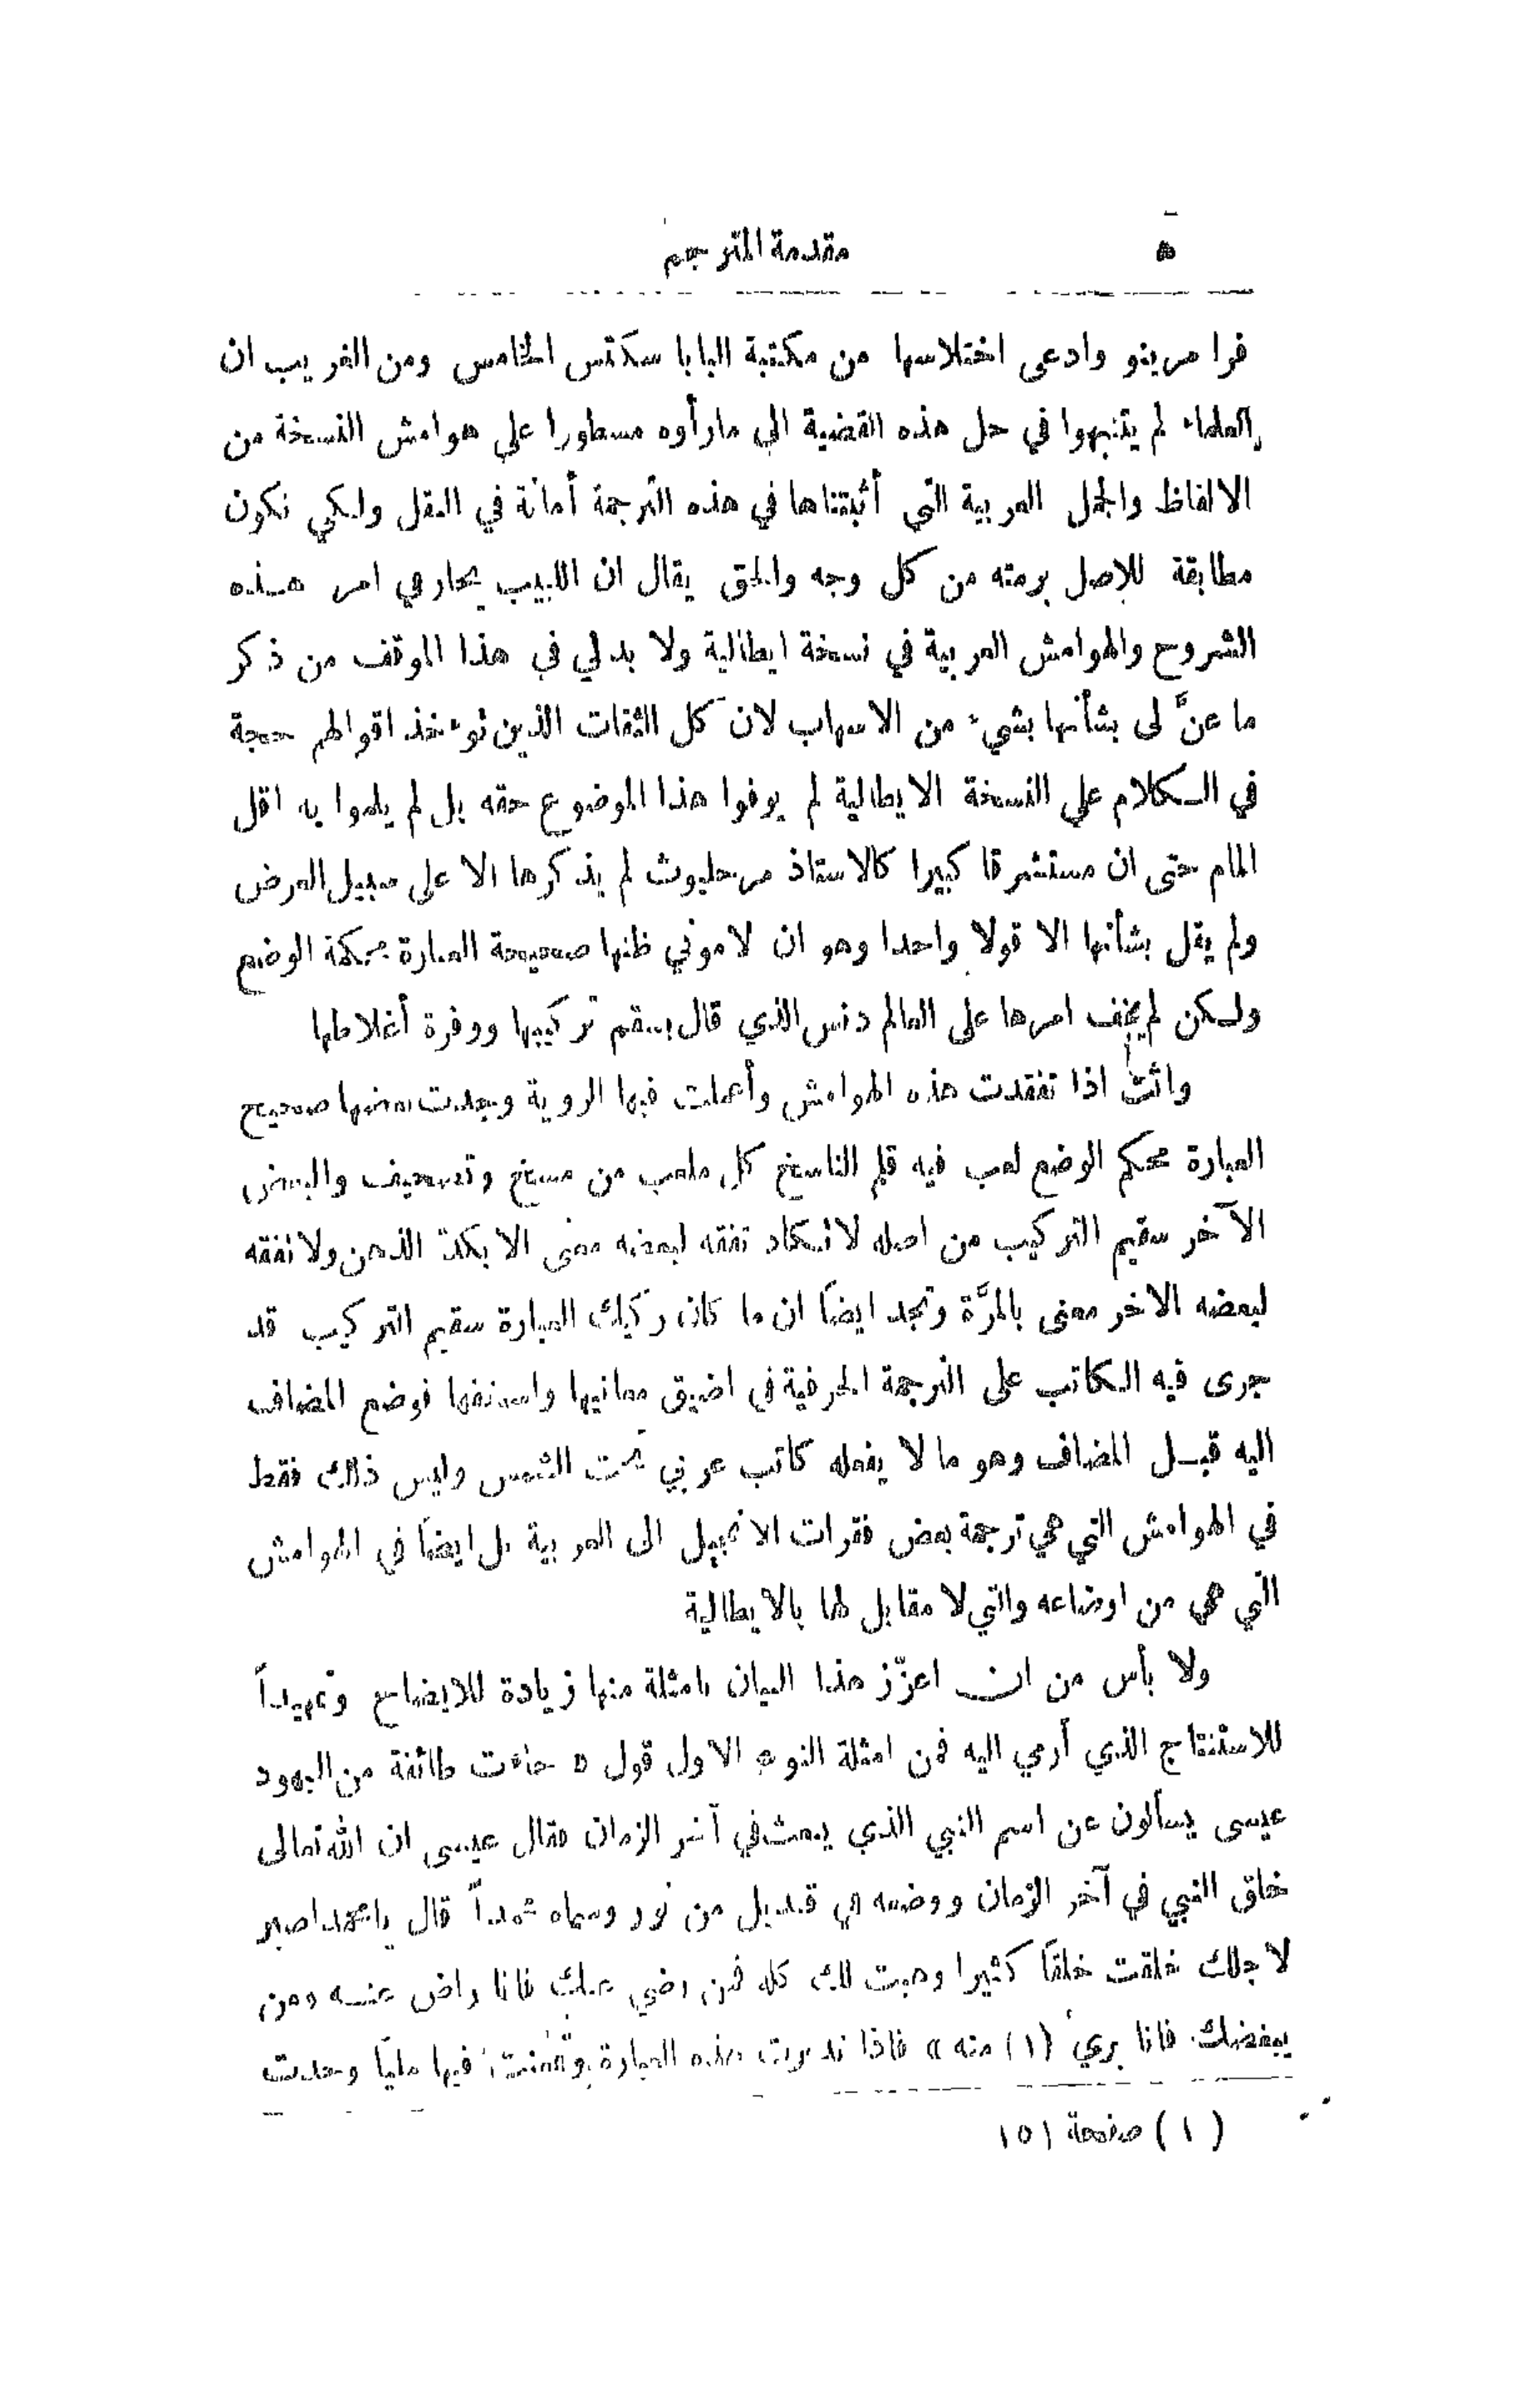 ٥ مقدمة المترجم
فرا مرينو وادعى اختلاسها من مكتبة البابا سكتس الخامس ومن الغريب ان
العلماء لم يتنبهوا في حل هذه القضية الى مارأوه مسطورا على هوامش النسخة من
الالفاظ والجمل العربية التي أثبتناها في هذه الترجمة أمانة في النقل ولكي نكون
مطابقة للاصل برمته من كل وجه والحق يقال ان اللبيب يحار في امر هذه
الشروح والهوامش العربية في نسخة ايطالية ولا بد لي في هذا الموقف من ذكر
ما عنَّ لى بشأنها بشيء من الاسهاب لان كل الثقات الذين تؤخذ اقوالهم حجة
في الكلام على النسخة الايطالية لم يوفوا هذا الموضوع حقه بل لم يلموا به اقل
المام حتى ان مستشرقا كبيرا كالاستاذ مرجليوث لم يذكرها الا على سبيل العرض
ولم يقل بشأنها الا قولا واحدا وهو ان لاموني ظنها صحيحة العبارة محكمة الوضع
ولكن لم يخف امرها على العالم دنس الذي قال بسقم تركيبها ووفرة أغلاطها
وانت اذا تفقدت هذه الهوامش وأعملت فيها الروية وجدت بعضها صحيح
العبارة محكم الوضع لعب فيه قلم الناسخ كل ملعب من مسخ وتصحيف والبعض
الآخر سقيم التركيب من اصله لا تكاد تفقه لبعضه معنى الا بكد الذهن ولا تفقه
لبعضه الاخر معنى بالمرَّة وتجد ايضاً ان ما كان ركيك العبارة سقيم التركيب قد
جرى فيه الكاتب على الترجمة الحرفية في اضيق معانيها واسخفها فوضع المضاف
اليه قبل المضاف وهو ما لا يفعله كاتب عربي تحت الشمس وليس ذلك فقط
في الهوامش التي هي ترجمة بعض فقرات الانجيل الى العربية بل ايضاً في الهوامش
التي هي من اوضاعه والتي لا مقابل لها بالايطالية
ولا بأس من ان اعزّز هذا البيان بامثلة منها زيادة للايضاح وتمهيداً
للاستنتاج الذي أرمي اليه فمن امثلة النوع الاول قول « جاءت طائفة من اليهود
عيسى يسألون عن اسم النبي الذي يبعث في آخر الزمان فقال عيسى ان الله تعالى
خلق النبي في آخر الزمان ووضعه في قنديل من نور وسماه محمداً قال يا محمد اصبر
لاجلك خلقت خلقاً كثيرا وهبت لك كله فمن رضي عنك فانا راض عنه ومن
يبغضك فانا بريء (١) منه » فاذا تدبرت هذه العبارة وتمعنت فيها ملياً وجدت
(١) صفحة ١٥١